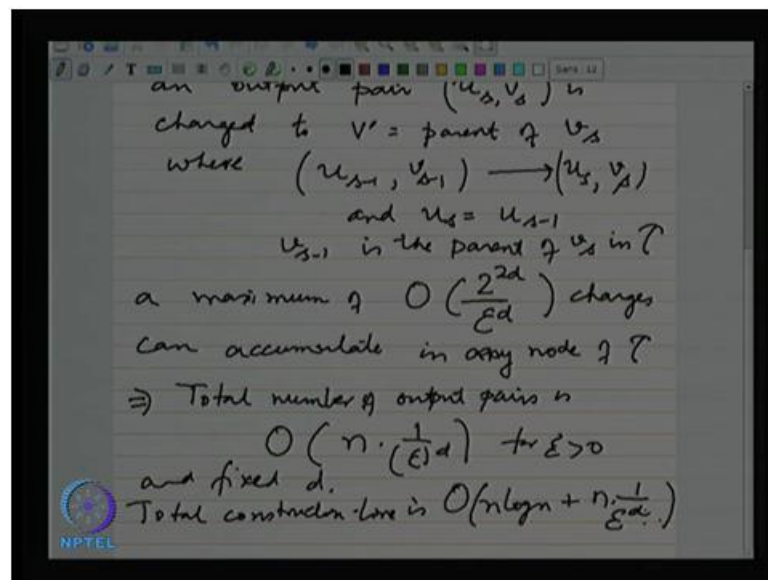 T
Sans 12
an output pair (u_s, v_s) is
changed to V' = parent of v_s
where (u_{s-1}, v_{s-1}) ⟶ (u_s, v_s)
and u_s = u_{s-1}
v_{s-1} is the parent of v_s in T
a maximum of O(2^{2d}/ε^d) changes
can accumulate in any node of T
⇒ Total number of output pairs is
O(n · 1/(ε)^d) for ε>0
and fixed d.
Total construction time is O(n log n + n · 1/ε^d)
NPTEL